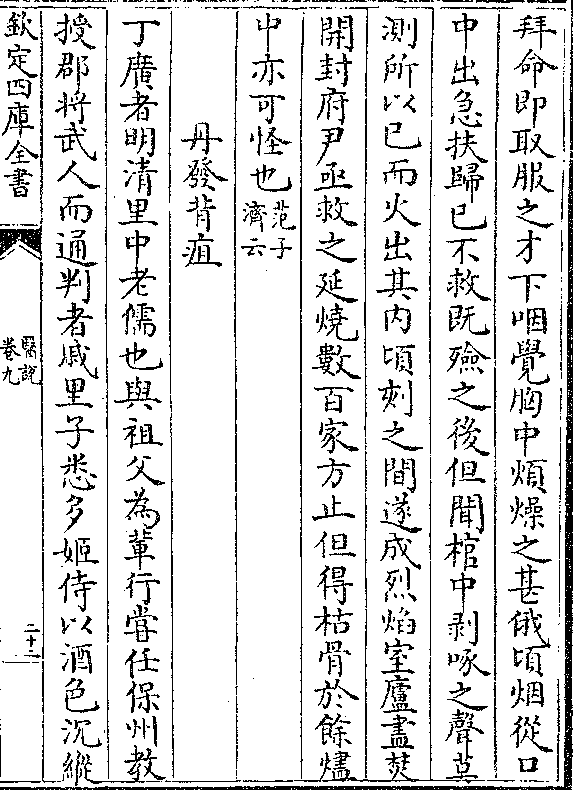 拜命即取服之才下咽覺胸中煩燥之甚俄頃烟從口
中出急扶歸已不救既殮之後但聞棺中剥啄之聲莫
測所以已而火出其内頃刻之間遂成烈焰室廬盡焚
開封府尹亟救之延燒數百家方止但得枯骨於餘燼
中亦可怪也范子
濟云
丹發背疽
丁廣者明清里中老儒也與祖父為輩行嘗任保州教
授郡將武人而通判者戚里子悉多姬侍以酒色沉縱
欽定四庫全書
醫說
卷九
二十二